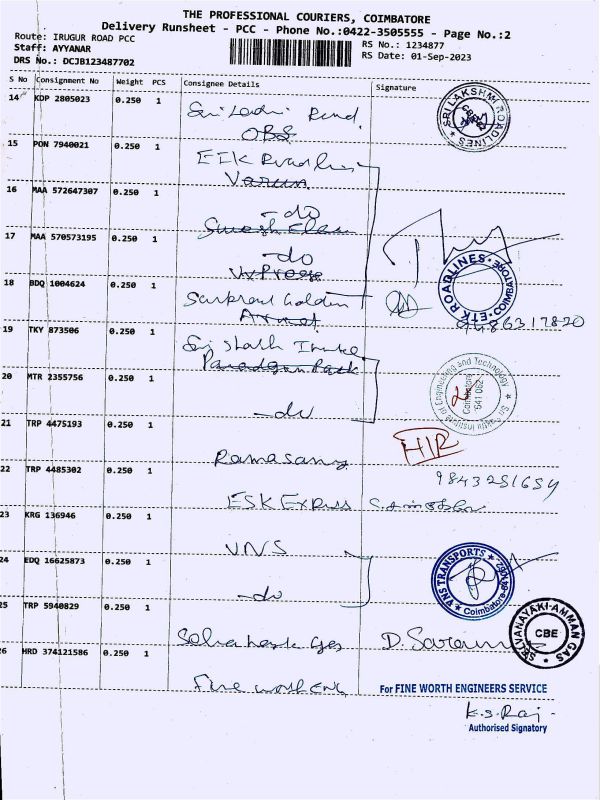 THE PROFESSIONAL COURIERS, COIMBATORE
Delivery Runsheet - PCC - Phone No.:0422-3505555 - Page No.:2
Route: IRUGUR ROAD PCC
Staff: AYYANAR
DRS No.: DCJB123487702
RS No.: 1234877
RS Date: 01-Sep-2023
S No Consignment No Weight PCS Consignee Details Signature
14 KDP 2805023 0.250 1
SRI LAKSHMI ROADLINES
15 PON 7940021 0.250 1
Varun
16 MAA 572647307 0.250 1
-do
17 MAA 570573195 0.250 1
-do
18 BDQ 1004624 0.250 1
ETK ROADLINES COIMBATORE
9486317820
19 TKY 873506 0.250 1
20 MTR 2355756 0.250 1
-do
Institute of Engineering and Technology
Coimbatore
641 062
21 TRP 4475193 0.250 1
Ramasamy
22 TRP 4485302 0.250 1
9843251654
ESK Express
23 KRG 136946 0.250 1
VNS
24 EDQ 16625873 0.250 1
-do
VNS TRANSPORTS
Coimbatore
25 TRP 5940829 0.250 1
D. Saravan
SRI VANAYAKI AMMAN GAS
CBE
26 HRD 374121586 0.250 1
Fine worth Eng
For FINE WORTH ENGINEERS SERVICE
K.S. Raj
Authorised Signatory